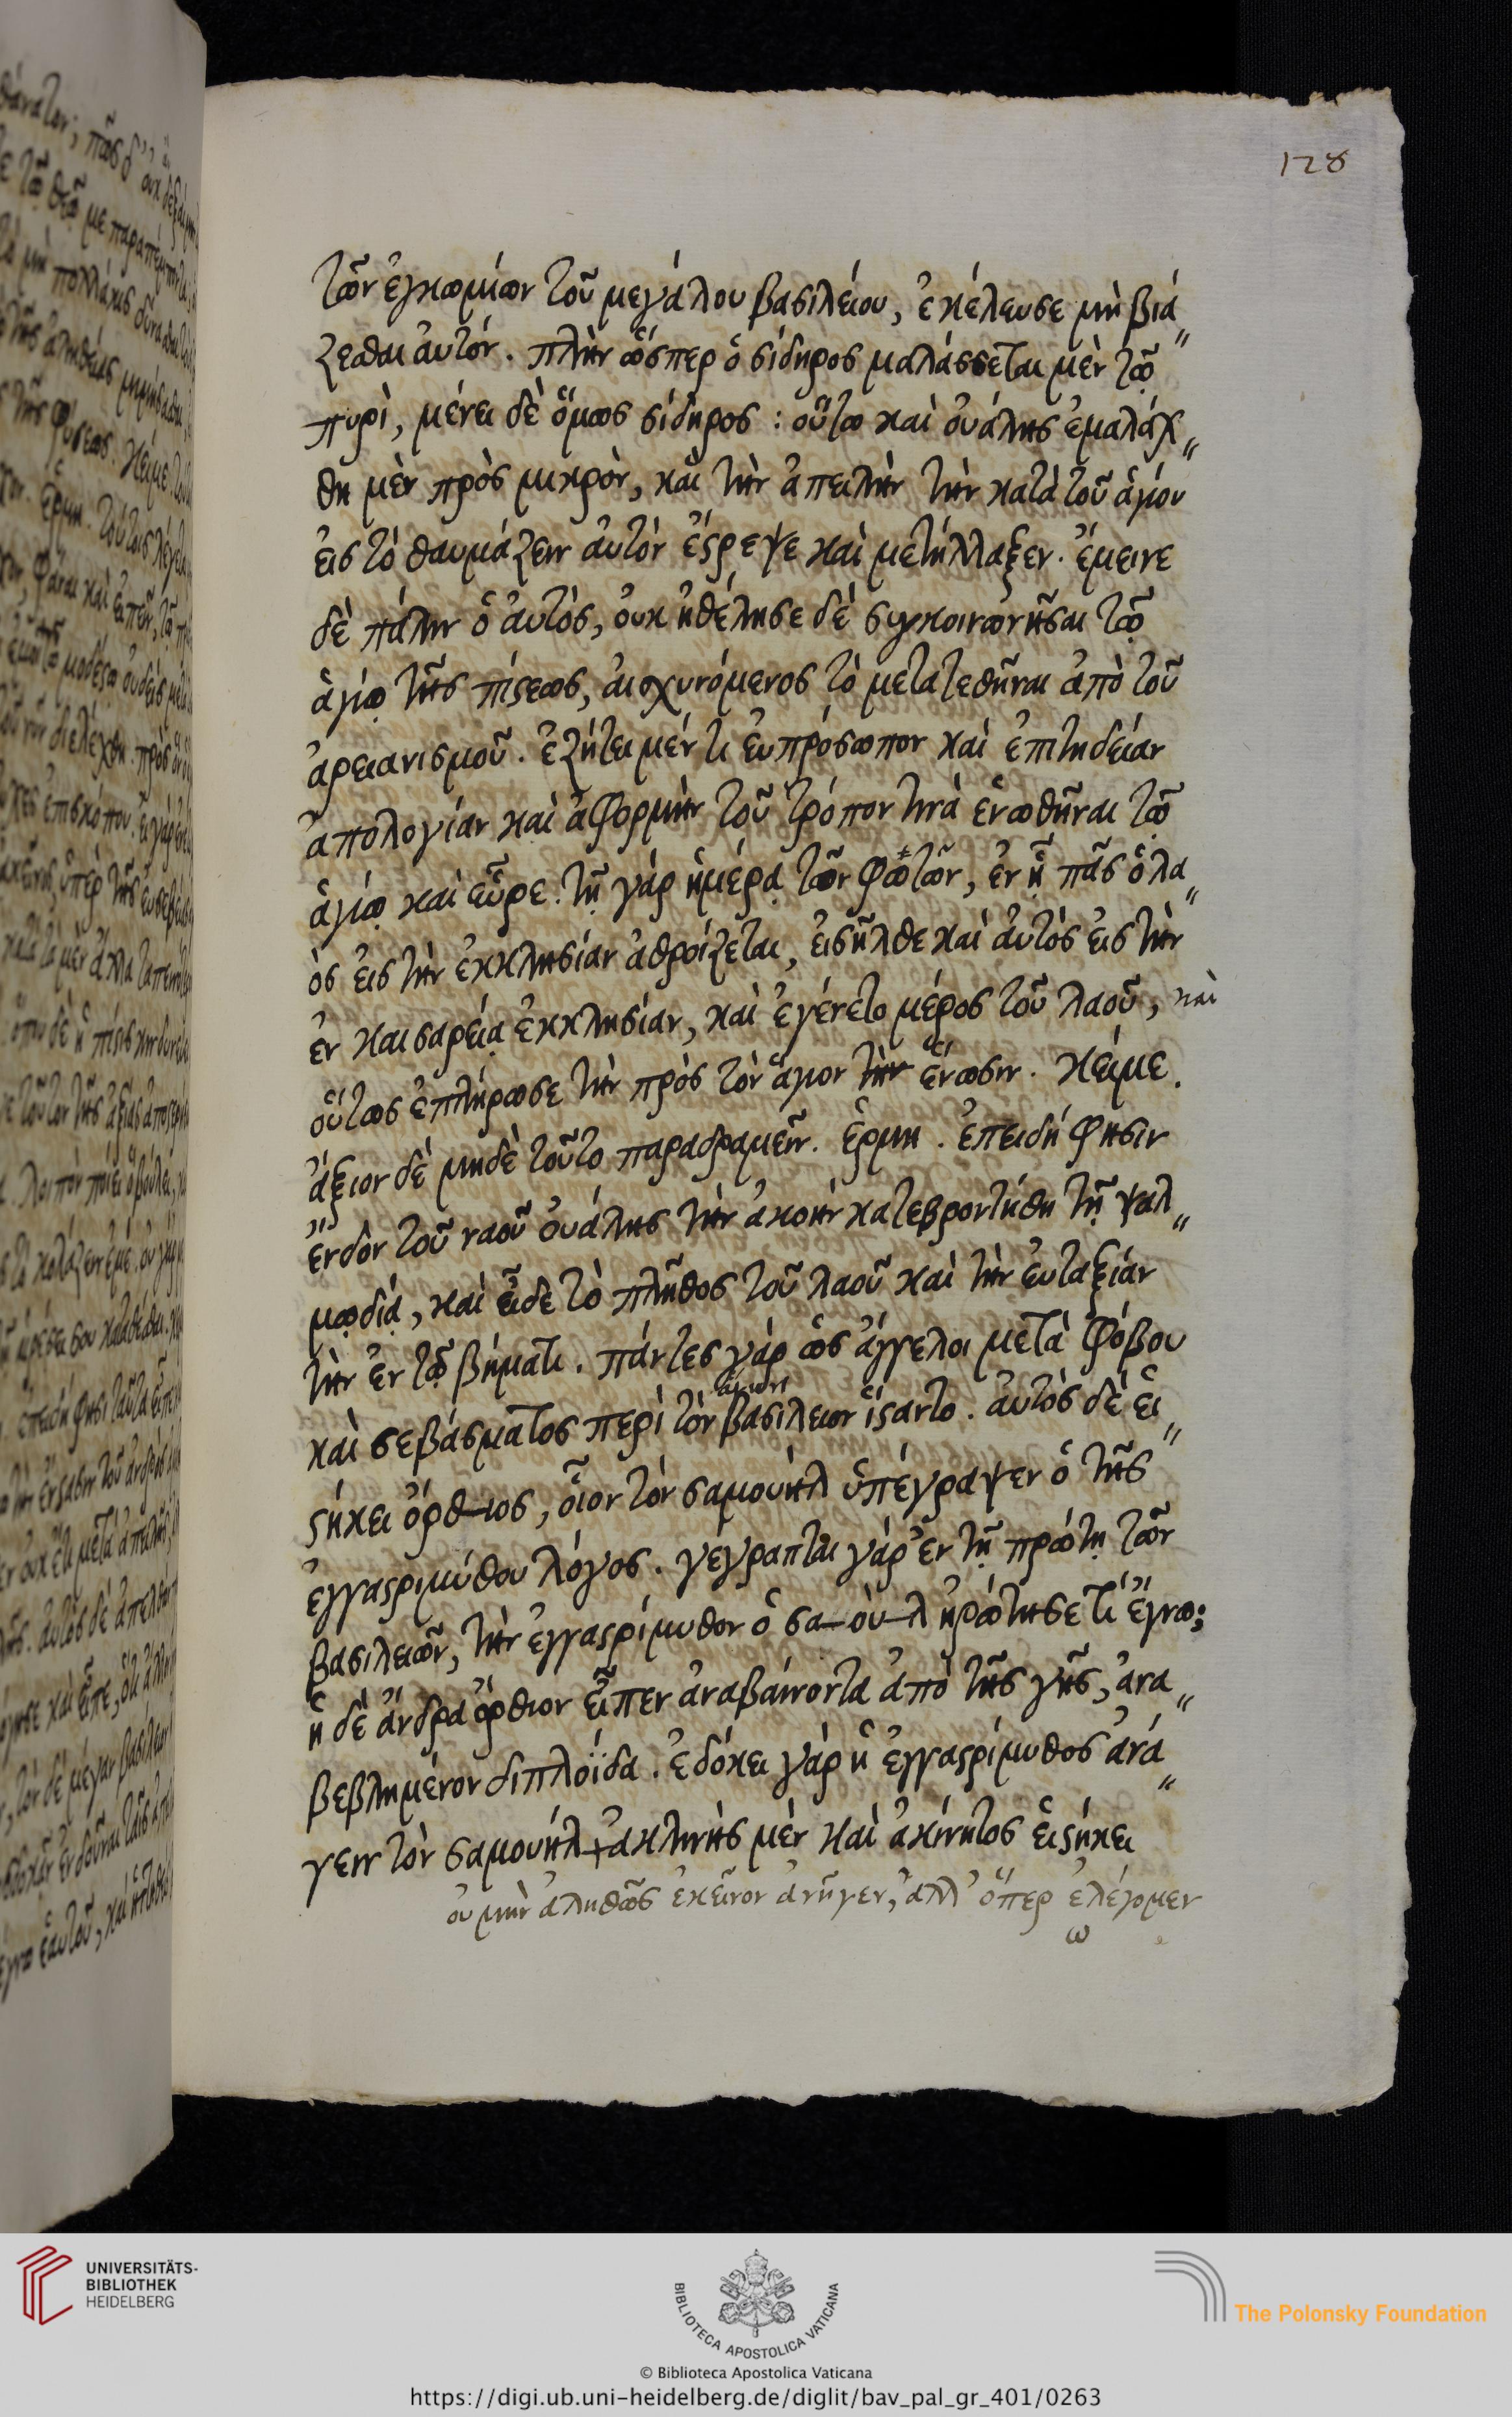 128
τῶν ἐγκωμίων τοῦ μεγάλου βασιλείου, ἐκέλευσε μὴ βιά〃
ζεσθαι ἀυτόν. πλὴν ὥσπερ ὁ σίδηρος μαλάσσεται μὲν τῷ
πυρὶ, μένει δὲ ὅμως σίδηρος : οὕτω καὶ ὀυάλης ἐμαλάχ〃
θη μὲν πρὸς μικρὸν, καὶ τὴν ἀπειλὴν τὴν κατὰ τοῦ ἁγίου
ἐις τὸ θαυμάζειν ἀυτὸν ἔϛρεψε καὶ μετήλλαξεν. ἔμεινε
δὲ πάλιν ὁ ἀυτὸς, ὀυκ ἠθέλησε δὲ συγκοινωνῆσαι τῷ
ἁγίῳ τῆς πίϛεως, ἀισχυνόμενος τὸ μετατεθῆναι ἀπὸ τοῦ
ἀρειανισμοῦ. ἐζήτει μέν τι ἐυπρόσωπον καὶ ἐπιτηδείαν
ἀπολογίαν καὶ ἀφορμὴν τοῦ τρόπον τινὰ ἑνωθῆναι τῷ
ἁγίῳ καὶ εὗρε. τῇ γὰρ ἡμέρᾳ τῶν φώτων, ἐν ᾗ πᾶς ὁ λα〃
ὸς ἐις τὴν ἐκκλησίαν ἀθροίζεται, ἐισῆλθε καὶ ἀυτὸς ἐις τὴν
ἐν καισαρείᾳ ἐκκλησίαν, καὶ ἐγένετο μέρος τοῦ λαοῦ, καὶ
οὕτως ἐπλήρωσε τὴν πρὸς τὸν ἅγιον τὴν ἕνωσιν. κείμε.
ἄξιον δὲ μηδὲ τοῦτο παραδραμεῖν. ἑρμη. ἐπειδή φησιν
ἔνδον τοῦ ναοῦ ὀυάλης τὴν ἀκοὴν κατεβροντήθη τῇ ψαλ〃
μῳδίᾳ, καὶ εἶδε τὸ πλῆθος τοῦ λαοῦ καὶ τὴν ἐυταξίαν
τὴν ἐν τῷ βήματι. πάντες γὰρ ὡς ἄγγελοι μετὰ φόβου
καὶ σεβάσματος περὶ τὸν βασίλειον ἵϛαντο. ἀυτὸς δὲ ἑι〃
ϛήκει ὄρθιος, οἷον τὸν σαμουὴλ ὑπέγραψεν ὁ τῆς
ἐγγαϛριμύθου λόγος. γέγραπται γὰρ ἐν τῇ πρώτῃ τῶν
βασιλειῶν, τὴν ἐγγαϛρίμυθον ὁ σαοὺλ ἠρώτησε τί ἔγνω;
ἡ δὲ ἄνδρα ὄρθιον εἶπεν ἀναβαίνοντα ἀπὸ τῆς γῆς, ἀνα〃
βεβλημένον διπλοΐδα. ἐδόκει γὰρ ἡ ἐγγαϛρίμυθος ἀνά〃
γειν τὸν σαμουὴλ + ἀκλινὴς μὲν καὶ ἀκίνητος ἑιϛήκει
ὀυ μὴν ἀληθῶς ἐκεῖνον ἀνῆγεν, ἀλλ' ὅπερ ἐλέγομεν
ω
UNIVERSITÄTS-
BIBLIOTHEK
HEIDELBERG
BIBLIOTECA APOSTOLICA VATICANA
The Polonsky Foundation
© Biblioteca Apostolica Vaticana
https://digi.ub.uni-heidelberg.de/diglit/bav_pal_gr_401/0263